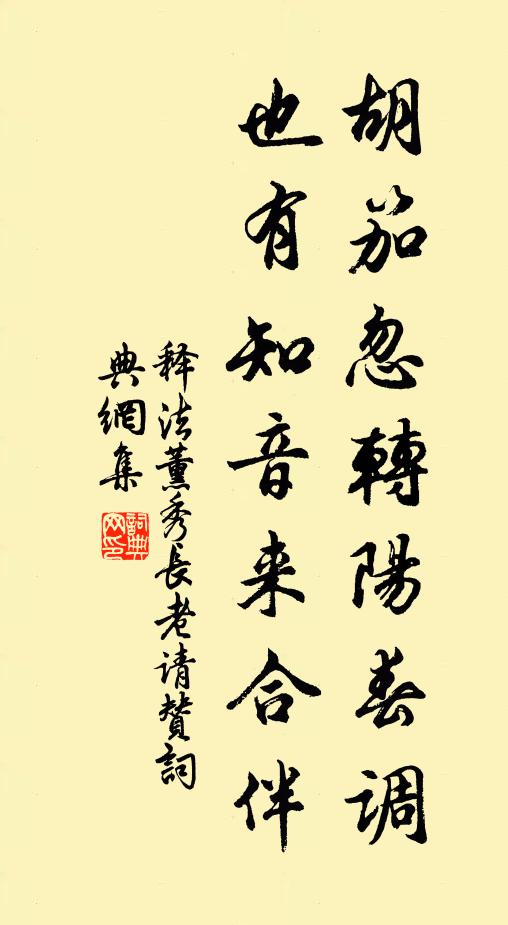 胡笳忽轉陽春调
也有知音来合伴
释法薰秀長老请赞詞
典網集
詞典網印